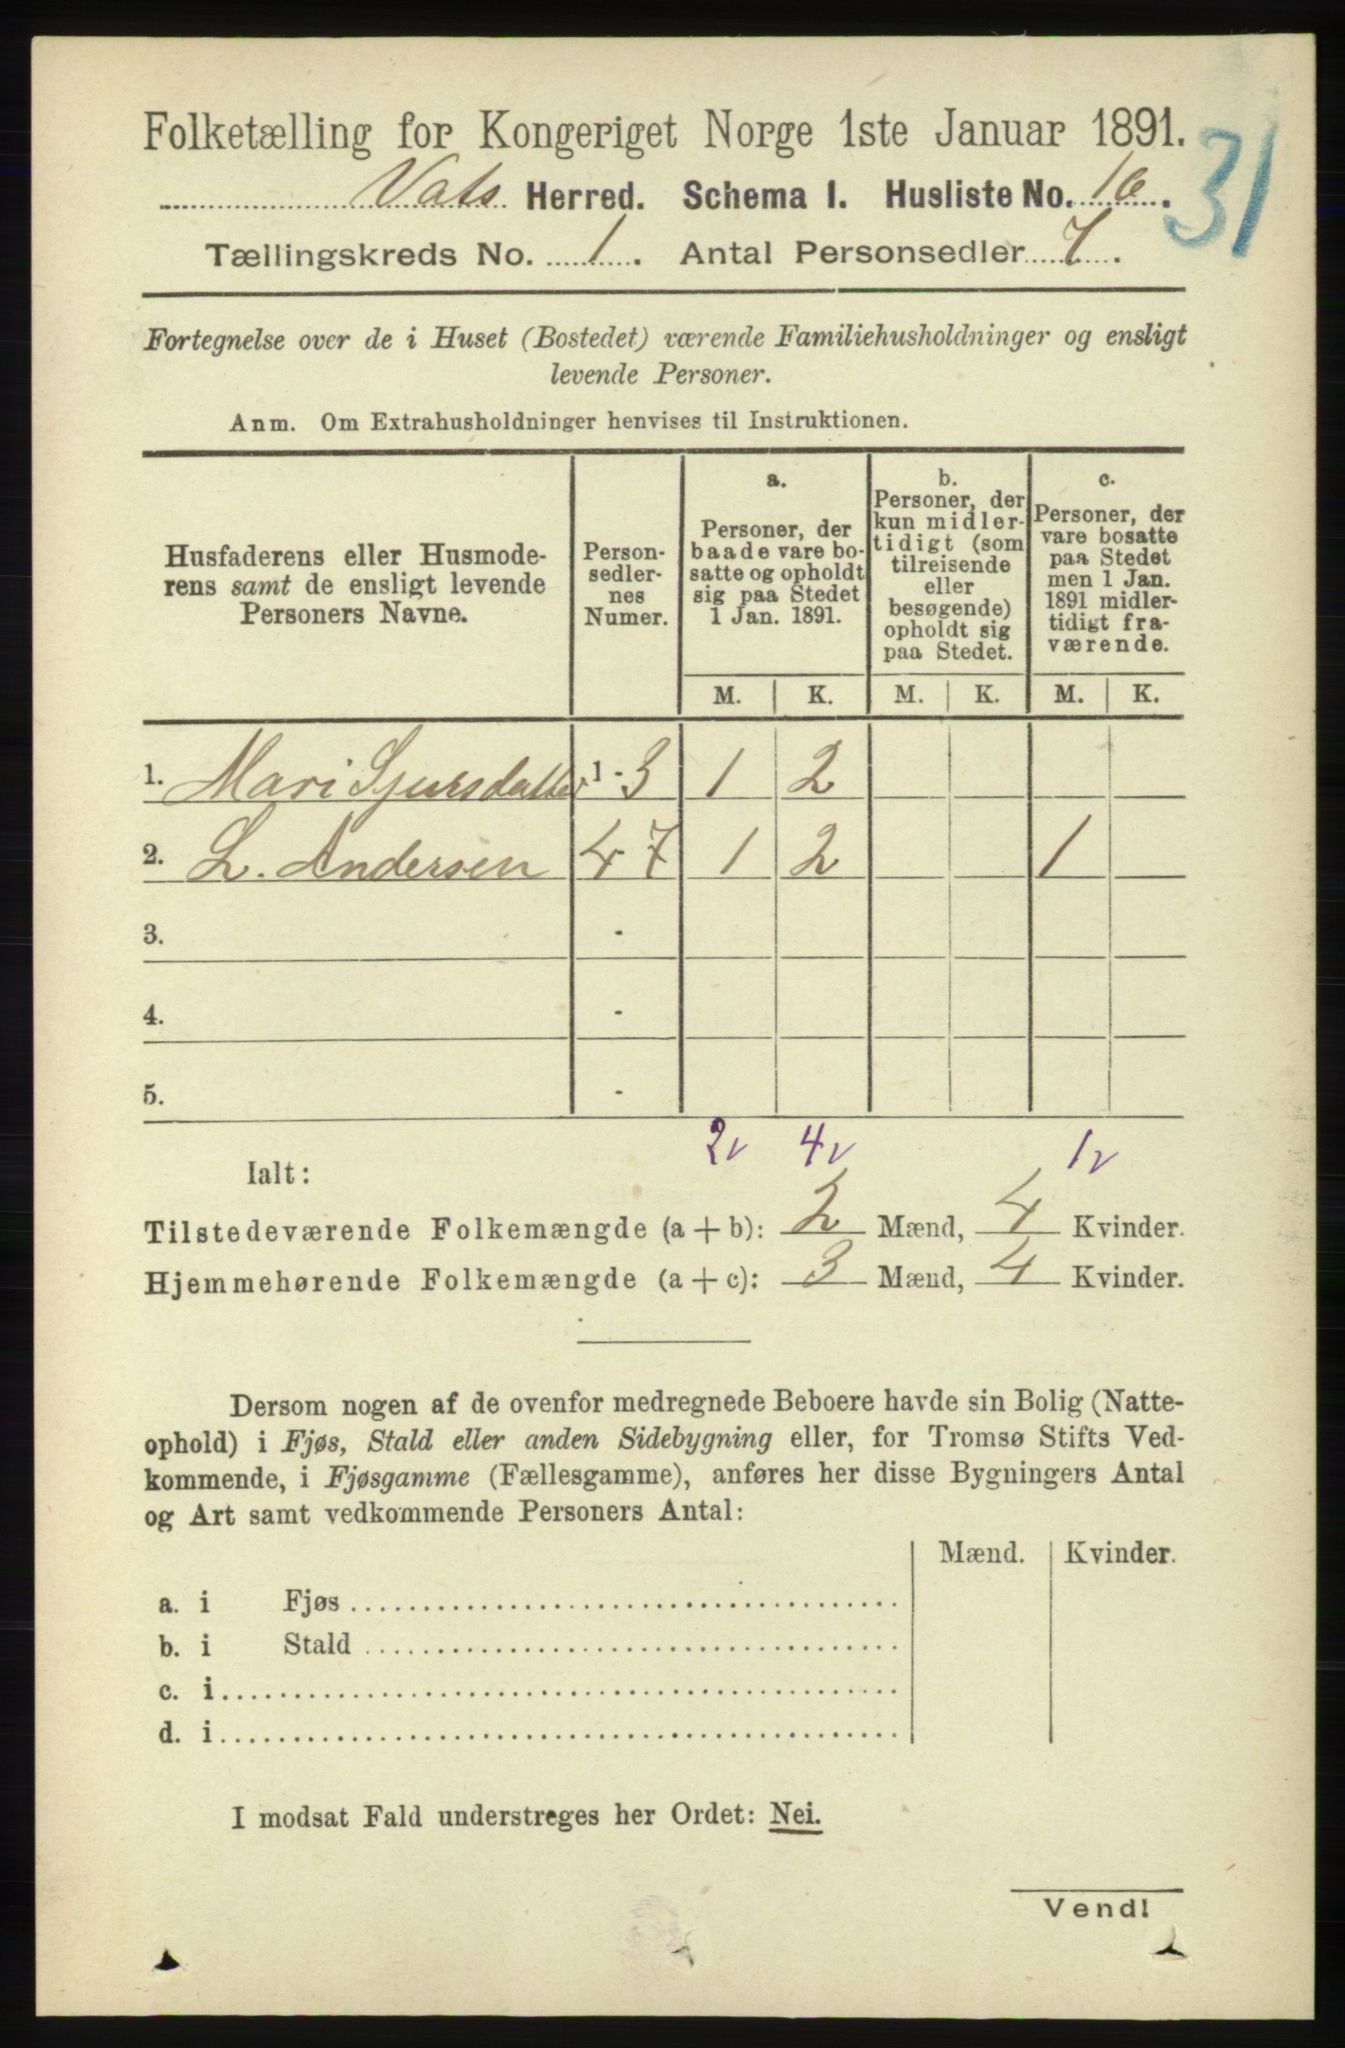 Folketælling for Kongeriget Norge 1ste Januar 1891.
31
Vats Herred. Schema I. Husliste No. 16.
Tællingskreds No. 1. Antal Personsedler 7.
Fortegnelse over de i Huset (Bostedet) værende Familiehusholdninger og ensligt
levende Personer.
Anm. Om Extrahusholdninger henvises til Instruktionen.
Husfaderens eller Husmode-
rens samt de ensligt levende
Personers Navne.
Person-
sedler-
nes
Numer.
a.
Personer, der
baade vare bo-
satte og opholdt
sig paa Stedet
1 Jan. 1891.
b.
Personer, der
kun midler-
tidigt (som
tilreisende
eller
besøgende)
opholdt sig
paa Stedet.
c.
Personer, der
vare bosatte
paa Stedet
men 1 Jan.
1891 midler-
tidigt fra-
værende.
M. K. M. K. M. K.
1. Mari Sjursdatter 1 - 3 1 2
2. L. Andersen 4 7 1 2 1
3. -
4. -
5. -
2v 4v 1v
Ialt:
Tilstedeværende Folkemængde (a + b): 2 Mænd, 4 Kvinder.
Hjemmehørende Folkemængde (a + c): 3 Mænd, 4 Kvinder.
Dersom nogen af de ovenfor medregnede Beboere havde sin Bolig (Natte-
ophold) i Fjøs, Stald eller anden Sidebygning eller, for Tromsø Stifts Ved-
kommende, i Fjøsgamme (Fællesgamme), anføres her disse Bygningers Antal
og Art samt vedkommende Personers Antal:
Mænd. Kvinder.
a. i Fjøs
b. i Stald
c. i
d. i
I modsat Fald understreges her Ordet: Nei.
Vend!